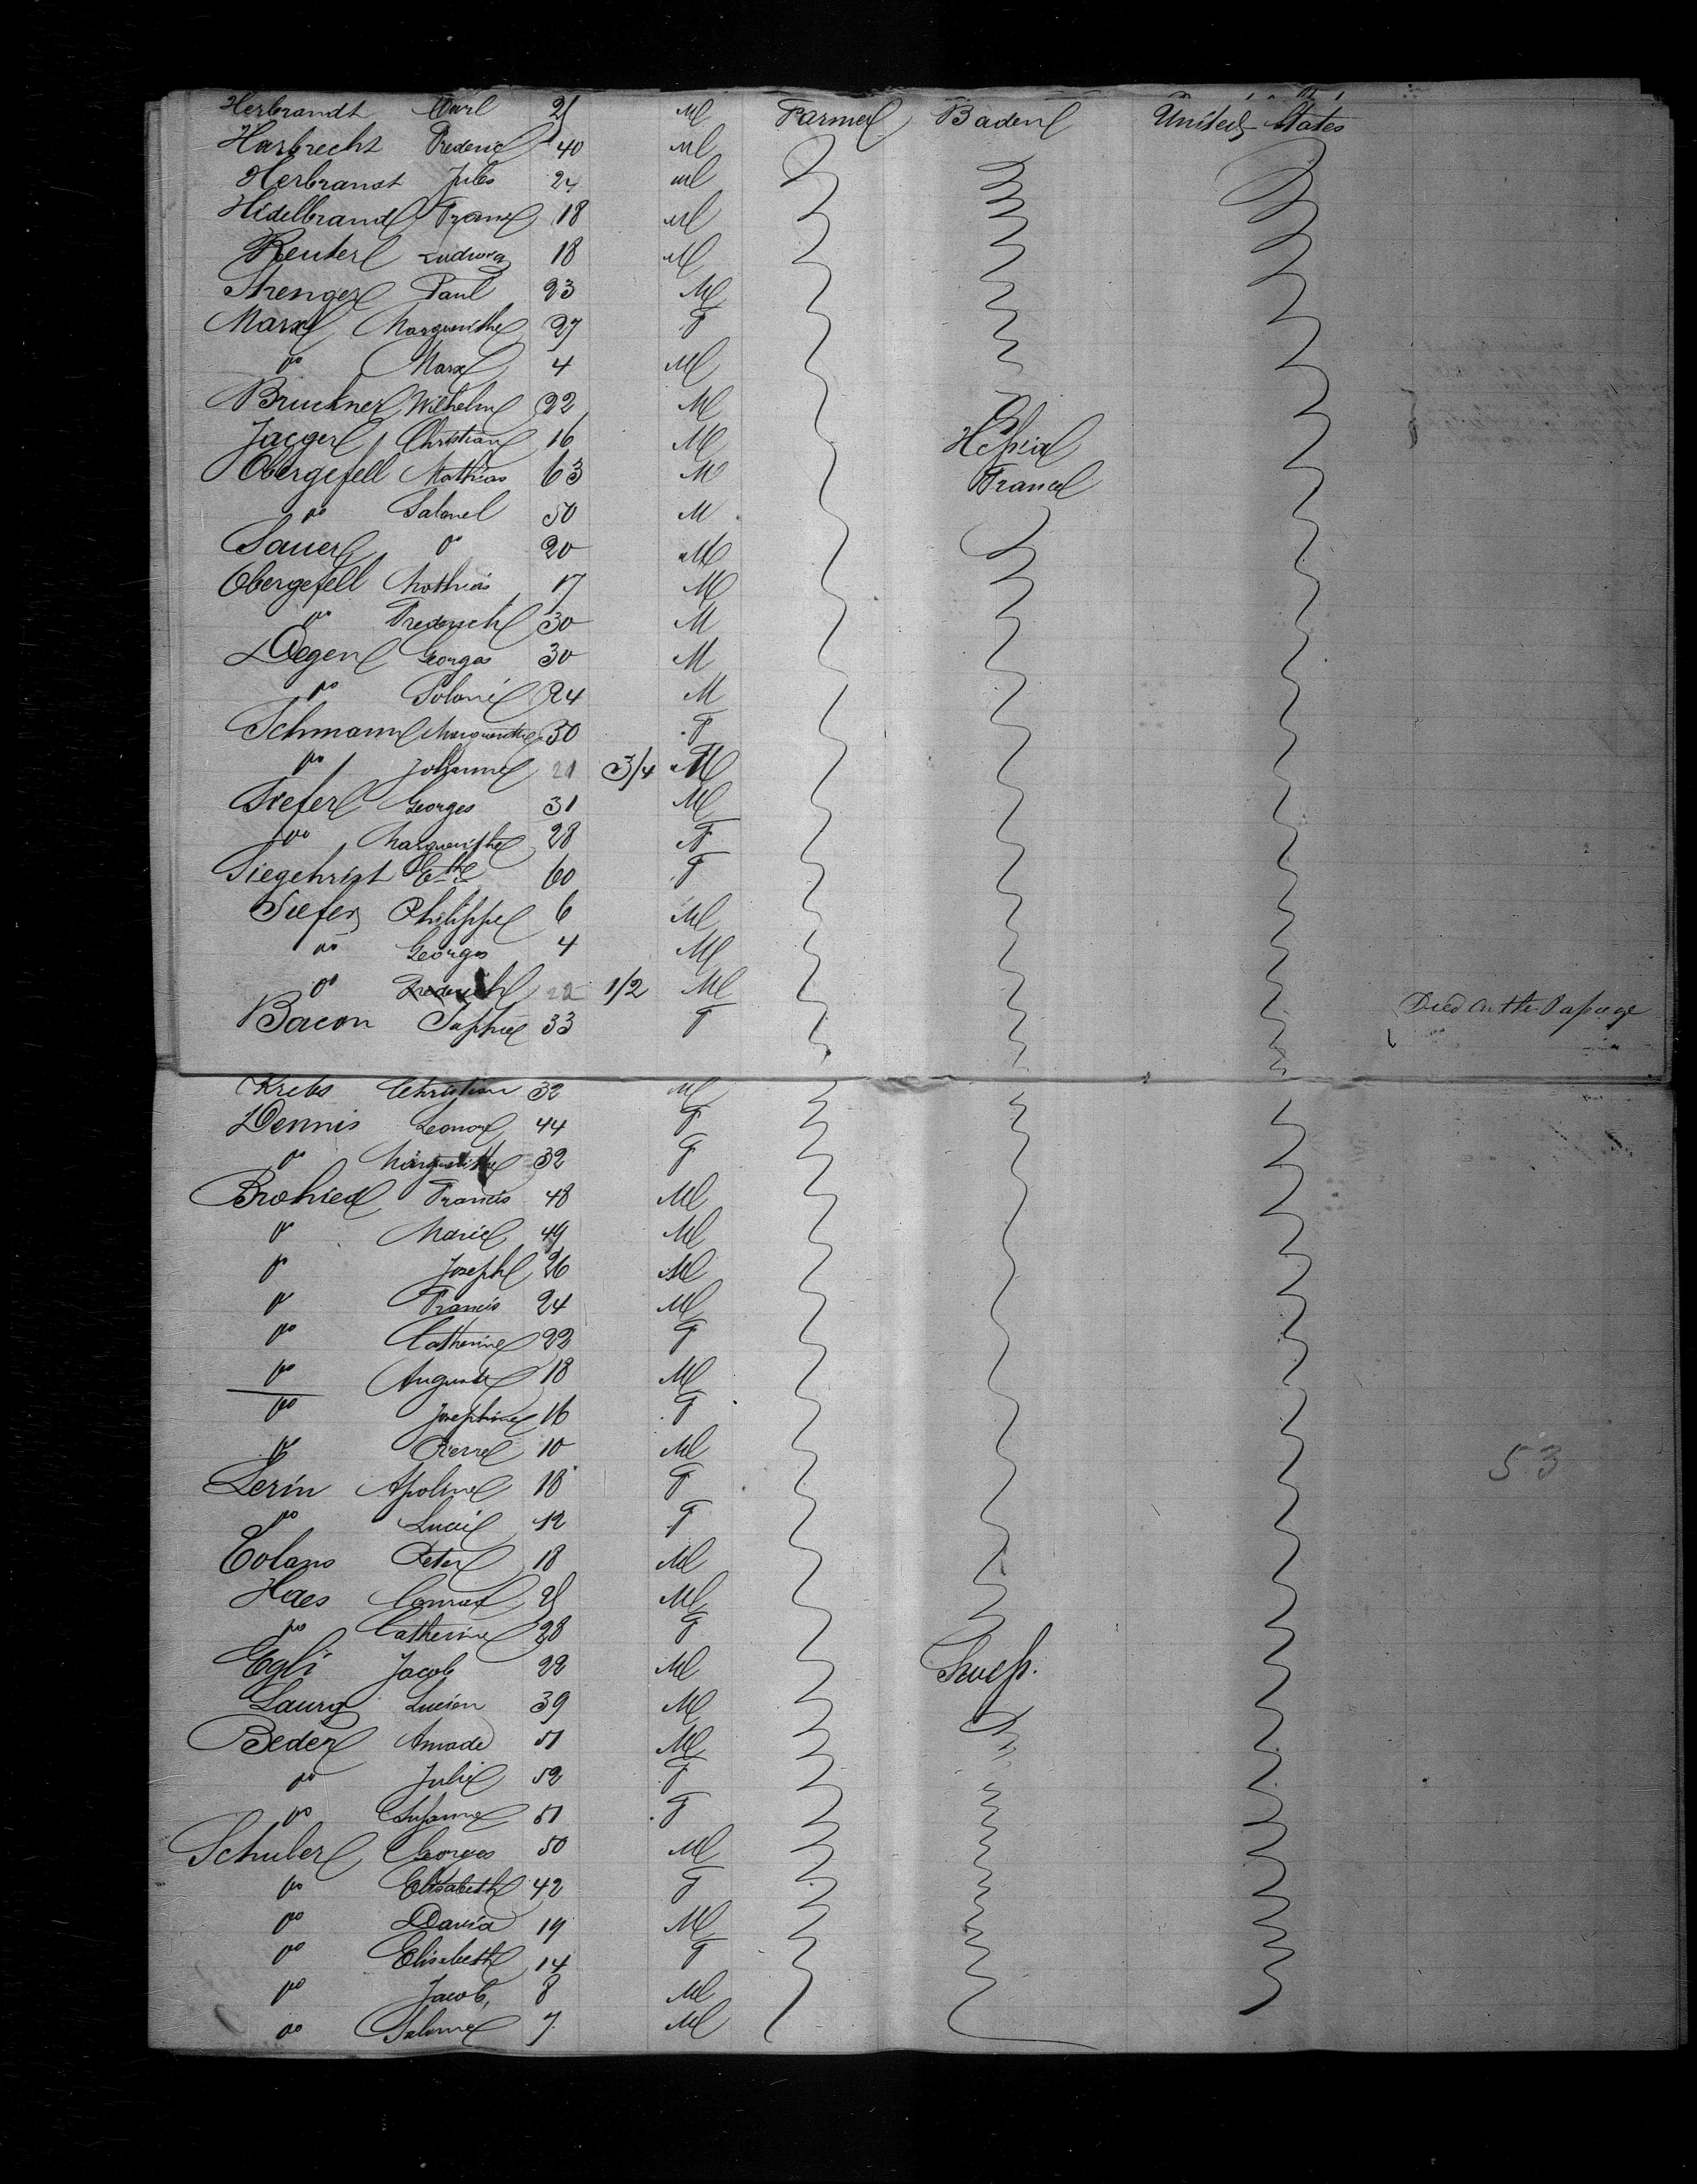 Herbrandt Carl 21 M Farmer Baden United States
Harbrecht Frederic 40 M
Herbrandt Jules 24 M
Hidelbrand Franz 18 M
Reuter Ludwig 18 M
Strenger Paul 23 M
Marx Marguerithe 27 F
do Marx 4 M
Bruckner Wilhelm 22 M
Jaeger Christian 16 M Hessia
Obergefell Mathias 63 M France
do Salome 50 M
Sauer do 20 M
Obergefell Mathias 17 M
do Frederich 30 M
Degen Georges 30 M
do Salomé 24 M
Schmann Marguerithe 30 F
do Johanne 21 3/4 M
Siefer Georges 31 M
do Marguerithe 28 F
Siegehrist Cthe 60 F
Siefer Philippe 6 M
do Georges 4 M
do Frederich 22 1/2 M
Bacon Sophie 33 F Died on the Passage
Krebs Christian 32 M
Dennis Leonore 44 F
do Marguerithe 32 F
Brohied Francis 48 M
do Marie 49 M
do Joseph 26 M
do Francis 24 M
do Catherine 22 F
do Auguste 18 M
do Josephine 16 F
do Pierre 10 M
Lerin Apoline 18 F
do Lucie 12 F
Colans Peter 18 M
Haes Conrad 25 M
do Catherine 28 F
Egli Jacob 22 M Swess.
Laurg Lucien 39 M
Beder Amade 51 M
do Julie 52 F
do Susanne 51 F
Schuber Georges 50 M
do Elisabeth 42 F
do David 19 M
do Elisabeth 14 F
do Jacob 8 M
do Salome 7 M
53